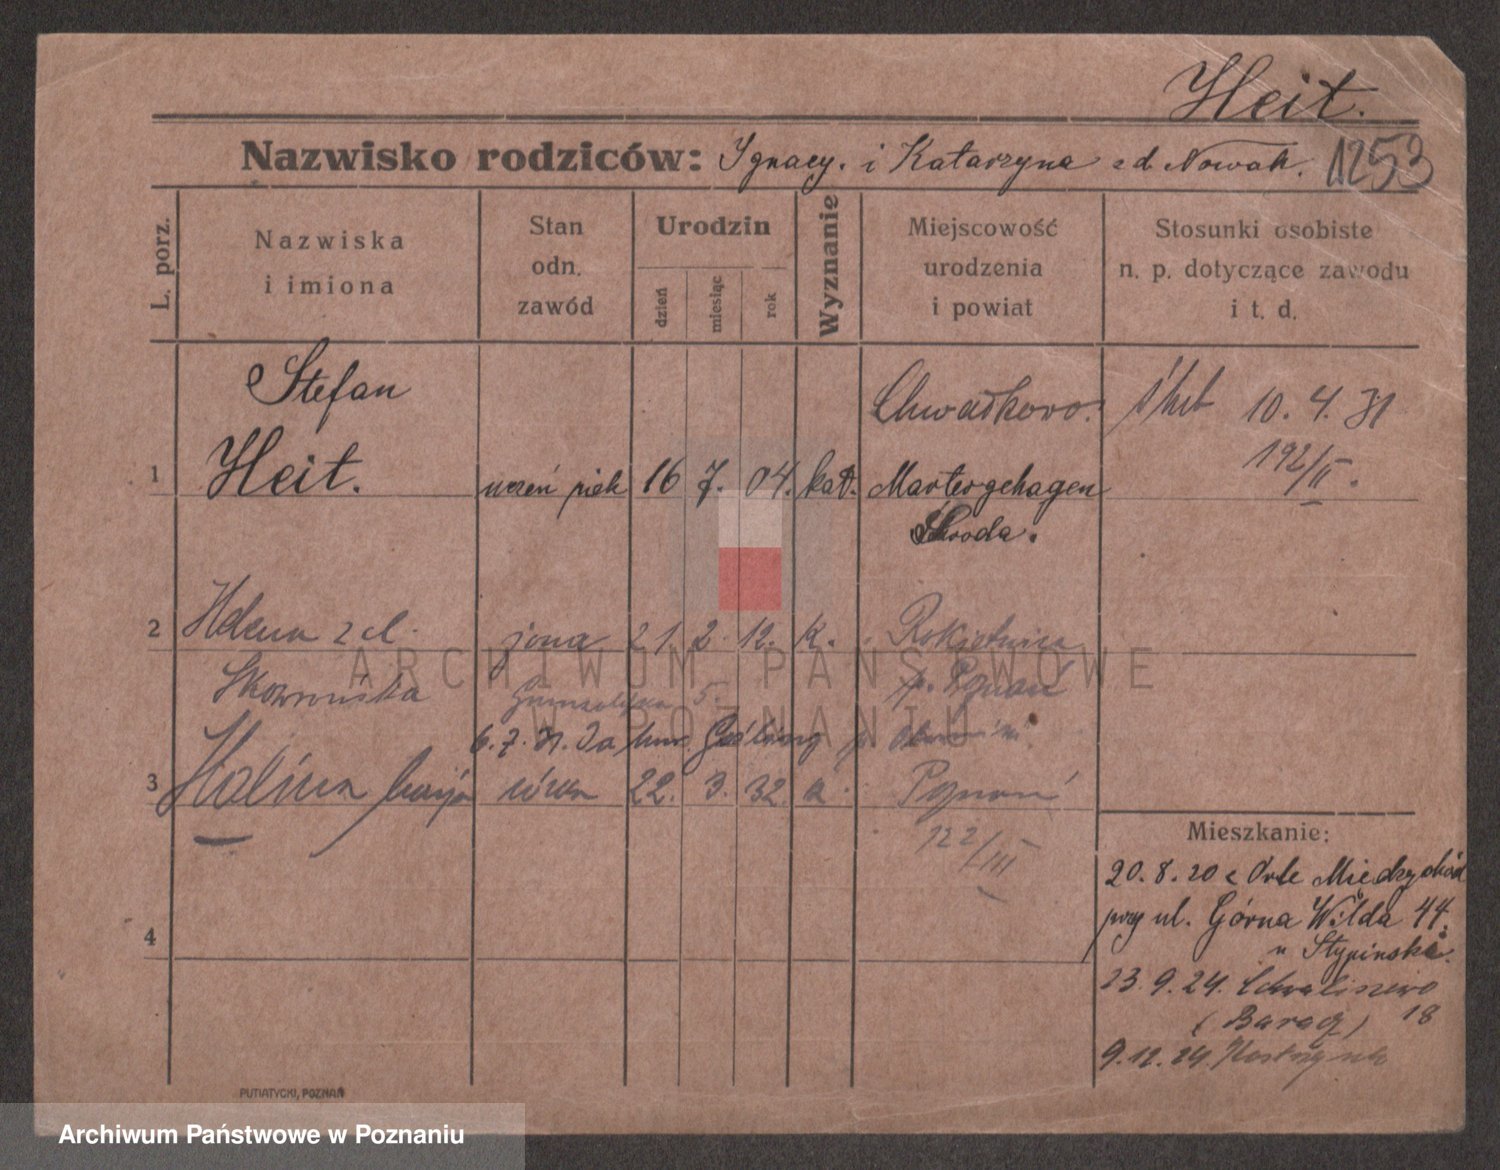 Heit.
Nazwisko rodziców: Ignacy. i Katarzyna zd Nowak. 1253
L. porz.
Nazwiska i imiona
Stan odn. zawód
Urodzin
dzień
miesiąc
rok
Wyznanie
Miejscowość urodzenia i powiat
Stosunki osobiste n. p. dotyczące zawodu i t. d.
Stefan Chwałkowo. ślub 10. 4. 31
192/II.
1 Heit. uczeń piek 16 7. 04. kat. Martergehagen
Środa.
2 Helena z d. żona 21. 2. 12. K. Rokietnica
Skowrońska 5. p. Poznań
6. 7. 31.
3 Halina córka 22. 3. 32 Poznań
122/III
Mieszkanie:
20. 8. 20 Międzychód
przy ul. Górna Wilda 44.
u Stypinska.
23. 9. 24. Chwaliszewo
(Baraq) 18
9. 12. 24. Kostrzyn
4
PUTIATYCKI, POZNAŃ
ARCHIWUM PAŃSTWOWE
W POZNANIU
Archiwum Państwowe w Poznaniu